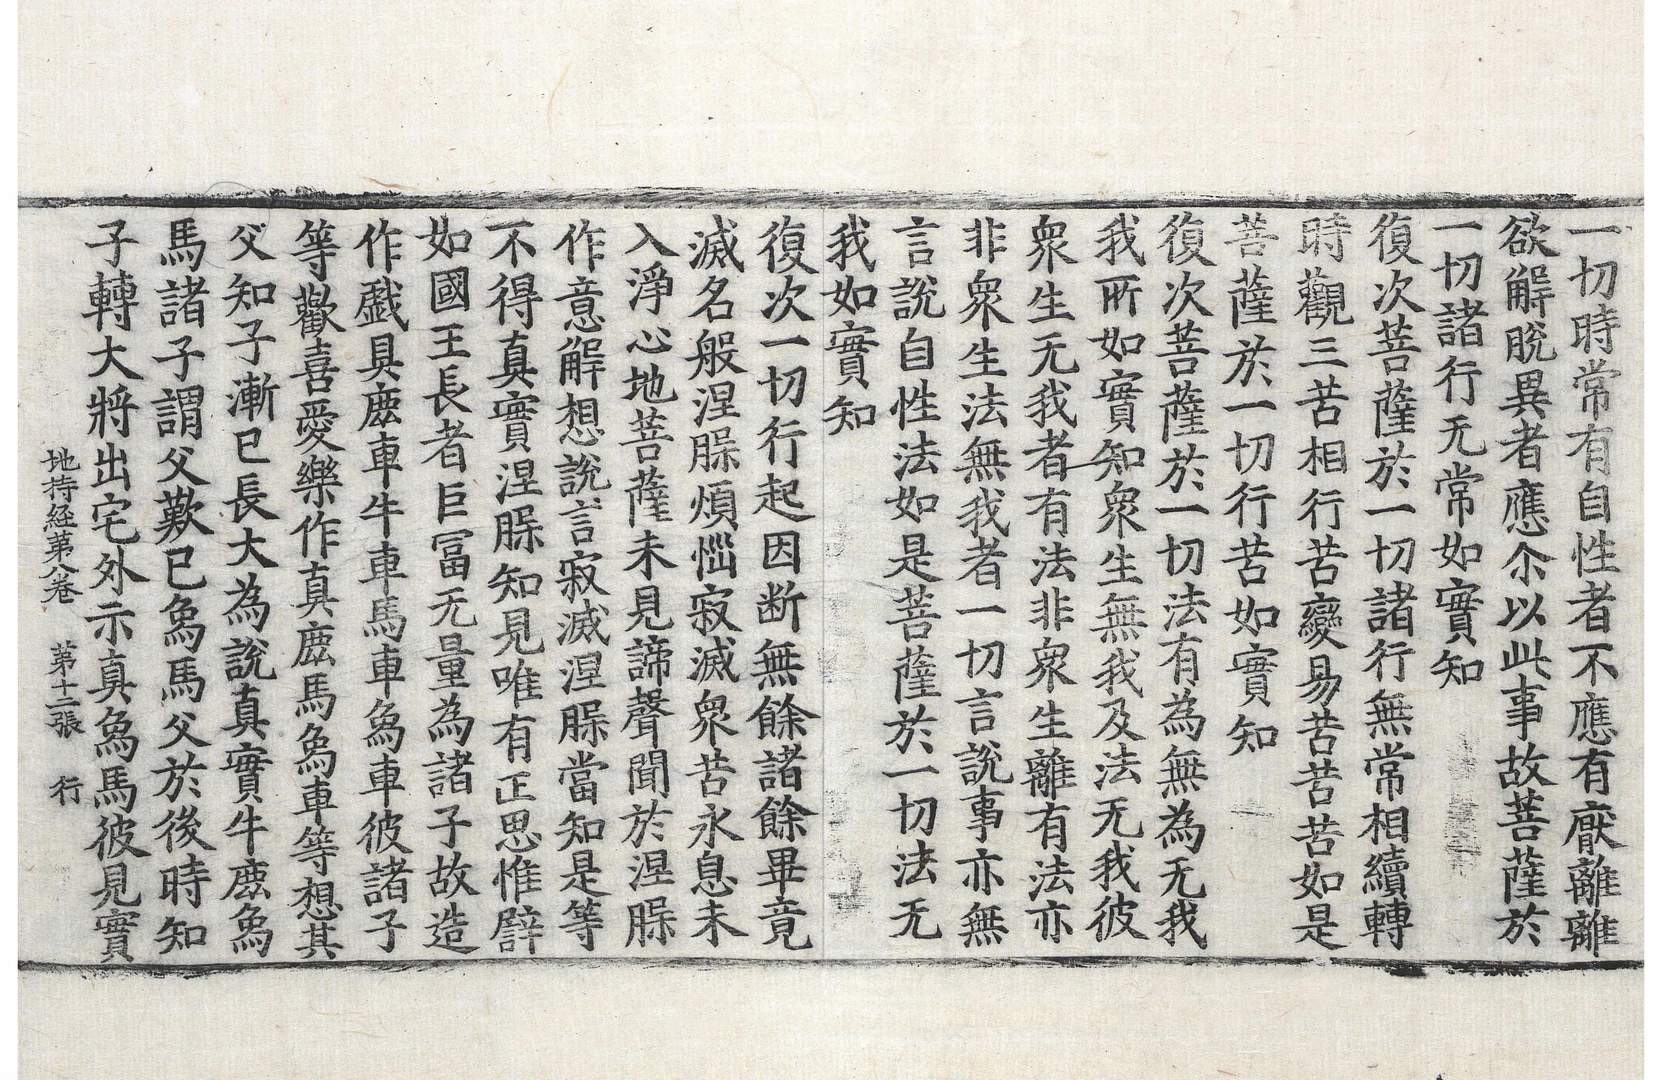 一切時常有自性者不應有厭離離
欲解脫異者應尒以此事故菩薩於
一切諸行无常如實知
復次菩薩於一切諸行無常相續轉
時觀三苦相行苦變易苦苦苦如是
菩薩於一切行苦如實知
復次菩薩於一切法有為無為无我
我所如實知衆生無我及法无我彼
衆生无我者有法非衆生離有法亦
非衆生法無我者一切言說事亦無
言說自性法如是菩薩於一切法无
我如實知
復次一切行起因断無餘諸餘畢竟
滅名般涅槃煩惱寂滅衆苦永息未
入淨心地菩薩未見諦聲聞於涅槃
作意解想說言寂滅涅槃當知是等
不得真實涅槃知見唯有正思惟譬
如國王長者巨冨无量為諸子故造
作戲具鹿車牛車馬車象車彼諸子
等歡喜愛樂作真鹿馬象車等想其
父知子漸已長大為說真實牛鹿象
馬諸子謂父歎已象馬父於後時知
子轉大將出宅外示真象馬彼見實
地持経第八卷 第十二張 行